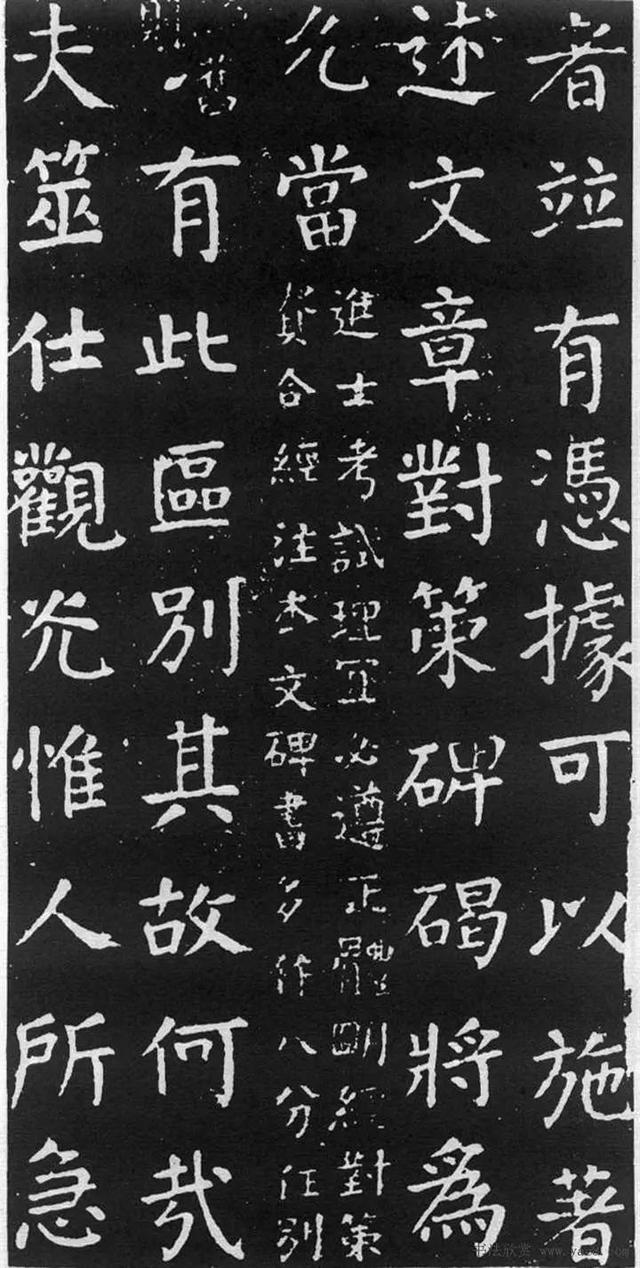 者竝有憑據可以施著
述文章對策碑碣將爲
允當
進士考試理宜必遵正體明經對策
貴合經注本文碑書多作八分任別
舊
則
有此區別其故何哉
夫筮仕觀光惟人所急
书法欣赏